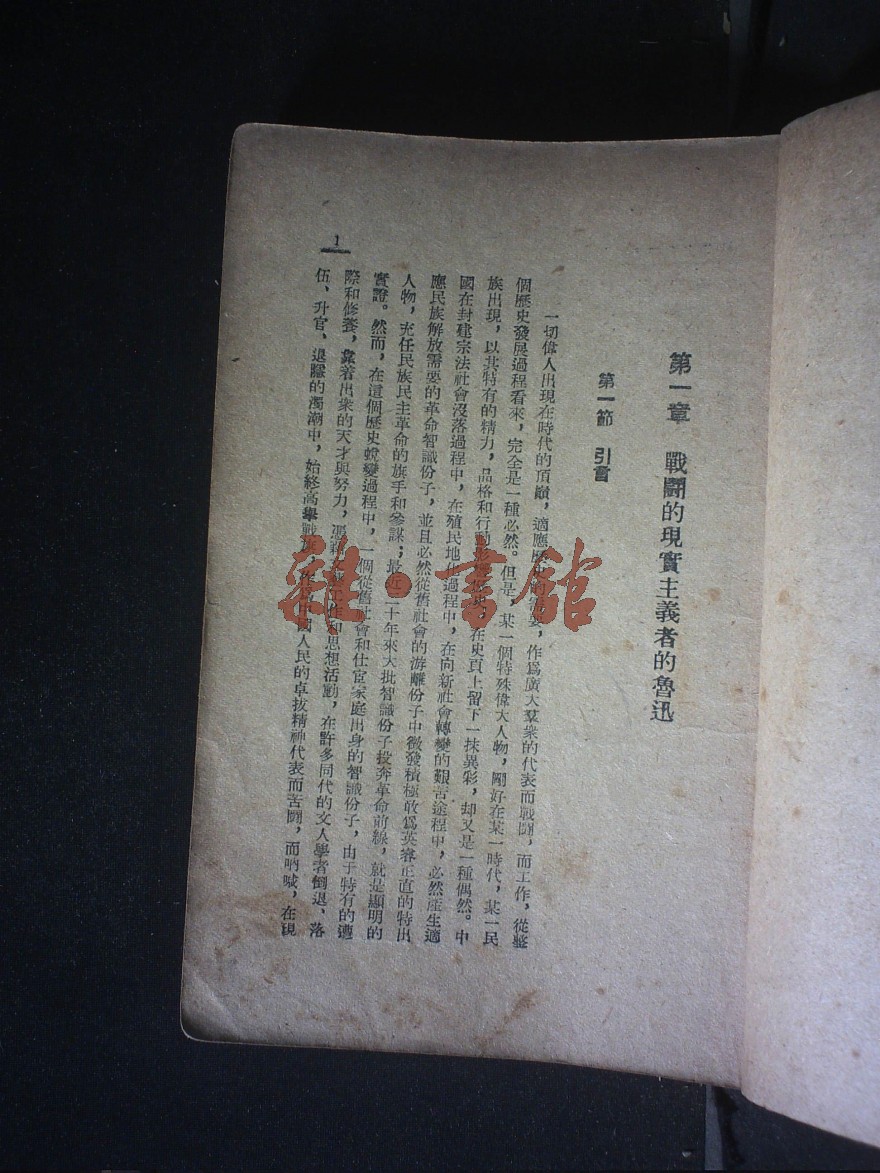 第一章 戰鬭的現實主義者的魯迅
第一節 引言
一切偉人出現在時代的頂巔，適應歷史的需要，作爲廣大羣衆的代表而戰鬭，而工作，從整
個歷史發展過程看來，完全是一種必然。但是，某一個特殊偉大人物，剛好在某一時代，某一民
族出現，以其特有的精力，品格和行動影響，在史頁上留下一抹異彩，却又是一種偶然。中
國在封建宗法社會沒落過程中，在殖民地化過程中，在向新社會轉變的艱苦途程中，必然產生適
應民族解放需要的革命智識份子，並且必然從舊社會的游離份子中激發積極敢爲英睿正直的特出
人物，充任民族民主革命的旗手和參謀；最近二十年來大批智識份子投奔革命前線，就是顯明的
實證。然而，在這個歷史蛻變過程中，一個從舊社會和仕宦家庭出身的智識份子，由于特有的遭
際和修養，靠着出衆的天才與努力，憑藉工作和思想活動，在許多同代的文人學者倒退、落
伍、升官、退隱的濁潮中，始終高舉戰旗，中國人民的卓拔精神代表而苦鬭，而吶喊，在現
1
雜·書館